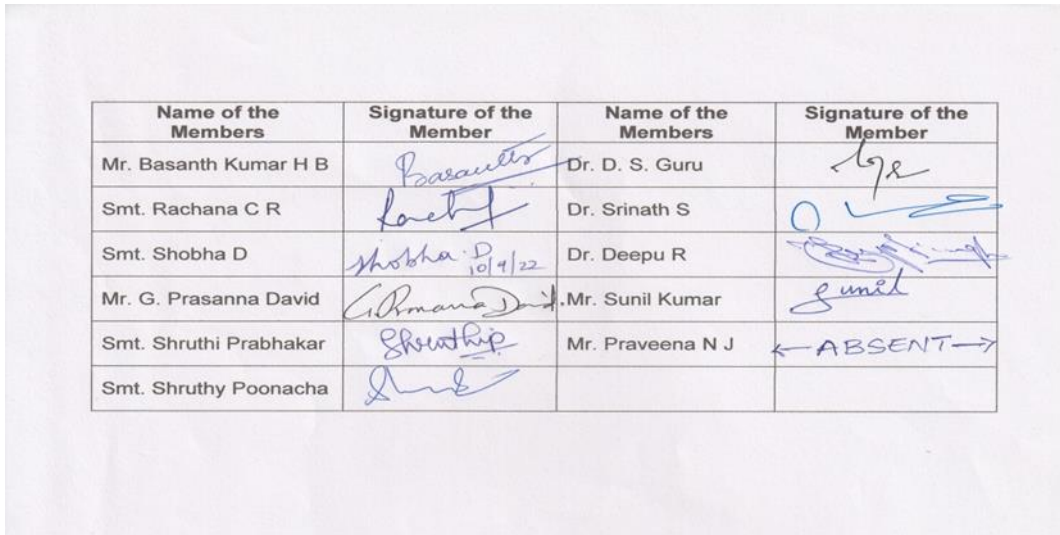 Name of the Members Signature of the Member Name of the Members Signature of the Member
Mr. Basanth Kumar H B Dr. D. S. Guru
Smt. Rachana C R Dr. Srinath S
Smt. Shobha D Shobha. D 10/9/22 Dr. Deepu R
Mr. G. Prasanna David Mr. Sunil Kumar Sunil
Smt. Shruthi Prabhakar Shruthip Mr. Praveena N J ←ABSENT→
Smt. Shruthy Poonacha